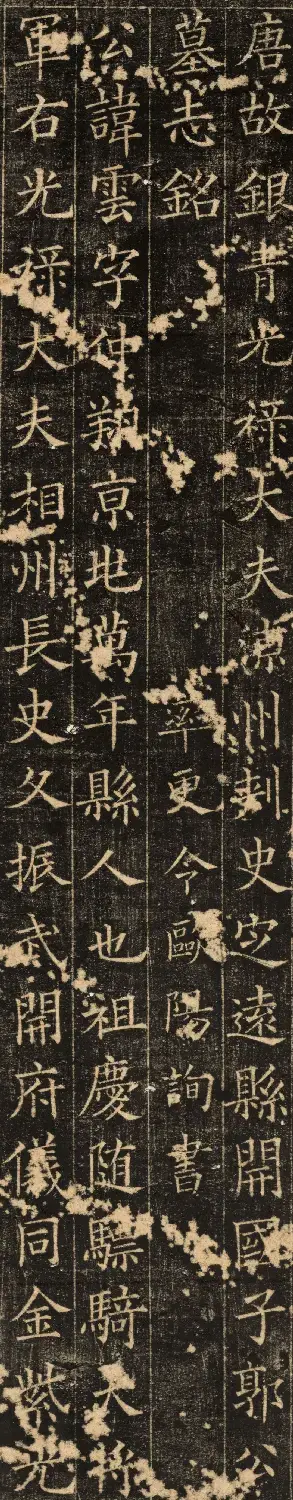 唐故銀青光祿大夫涼州刾史㝎遠縣開國子郭公
墓志銘　率更令歐陽詢書
公諱雲字仲翔亰兆萬年縣人也祖慶随驃騎大将
軍右光祿大夫相州長史父振武開府儀同金紫光